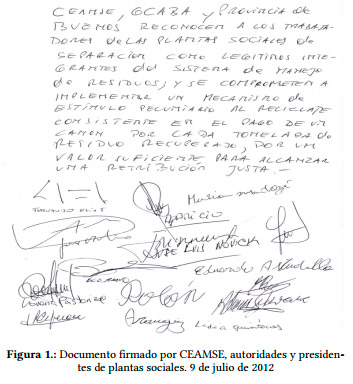 CEAMSE, GCABA y PROVINCIA DE
BUENOS RECONOCEN A LOS TRABAJA-
DORES DE LAS PLANTAS SOCIALES DE
SEPARACION COMO LEGITIMOS INTE-
GRANTES DEL SISTEMA DE MANEJO
DE RESIDUOS; Y SE COMPROMETEN A
IMPLEMENTAR UN MECANISMO DE
ESTÍMULO PECUNIARIO AL RECICLAJE
CONSISTENTE EN EL PAGO DE UN
CANON POR CADA TONELADA DE
RESIDUO RECUPERADO, POR UN
VALOR SUFICIENTE PARA ALCANZAR
UNA RETRIBUCIÓN JUSTA.-
APARICIO
JOSE LUIS NOVICK
Eduardo Astudillo
Figura 1.: Documento firmado por CEAMSE, autoridades y presiden-
tes de plantas sociales. 9 de julio de 2012